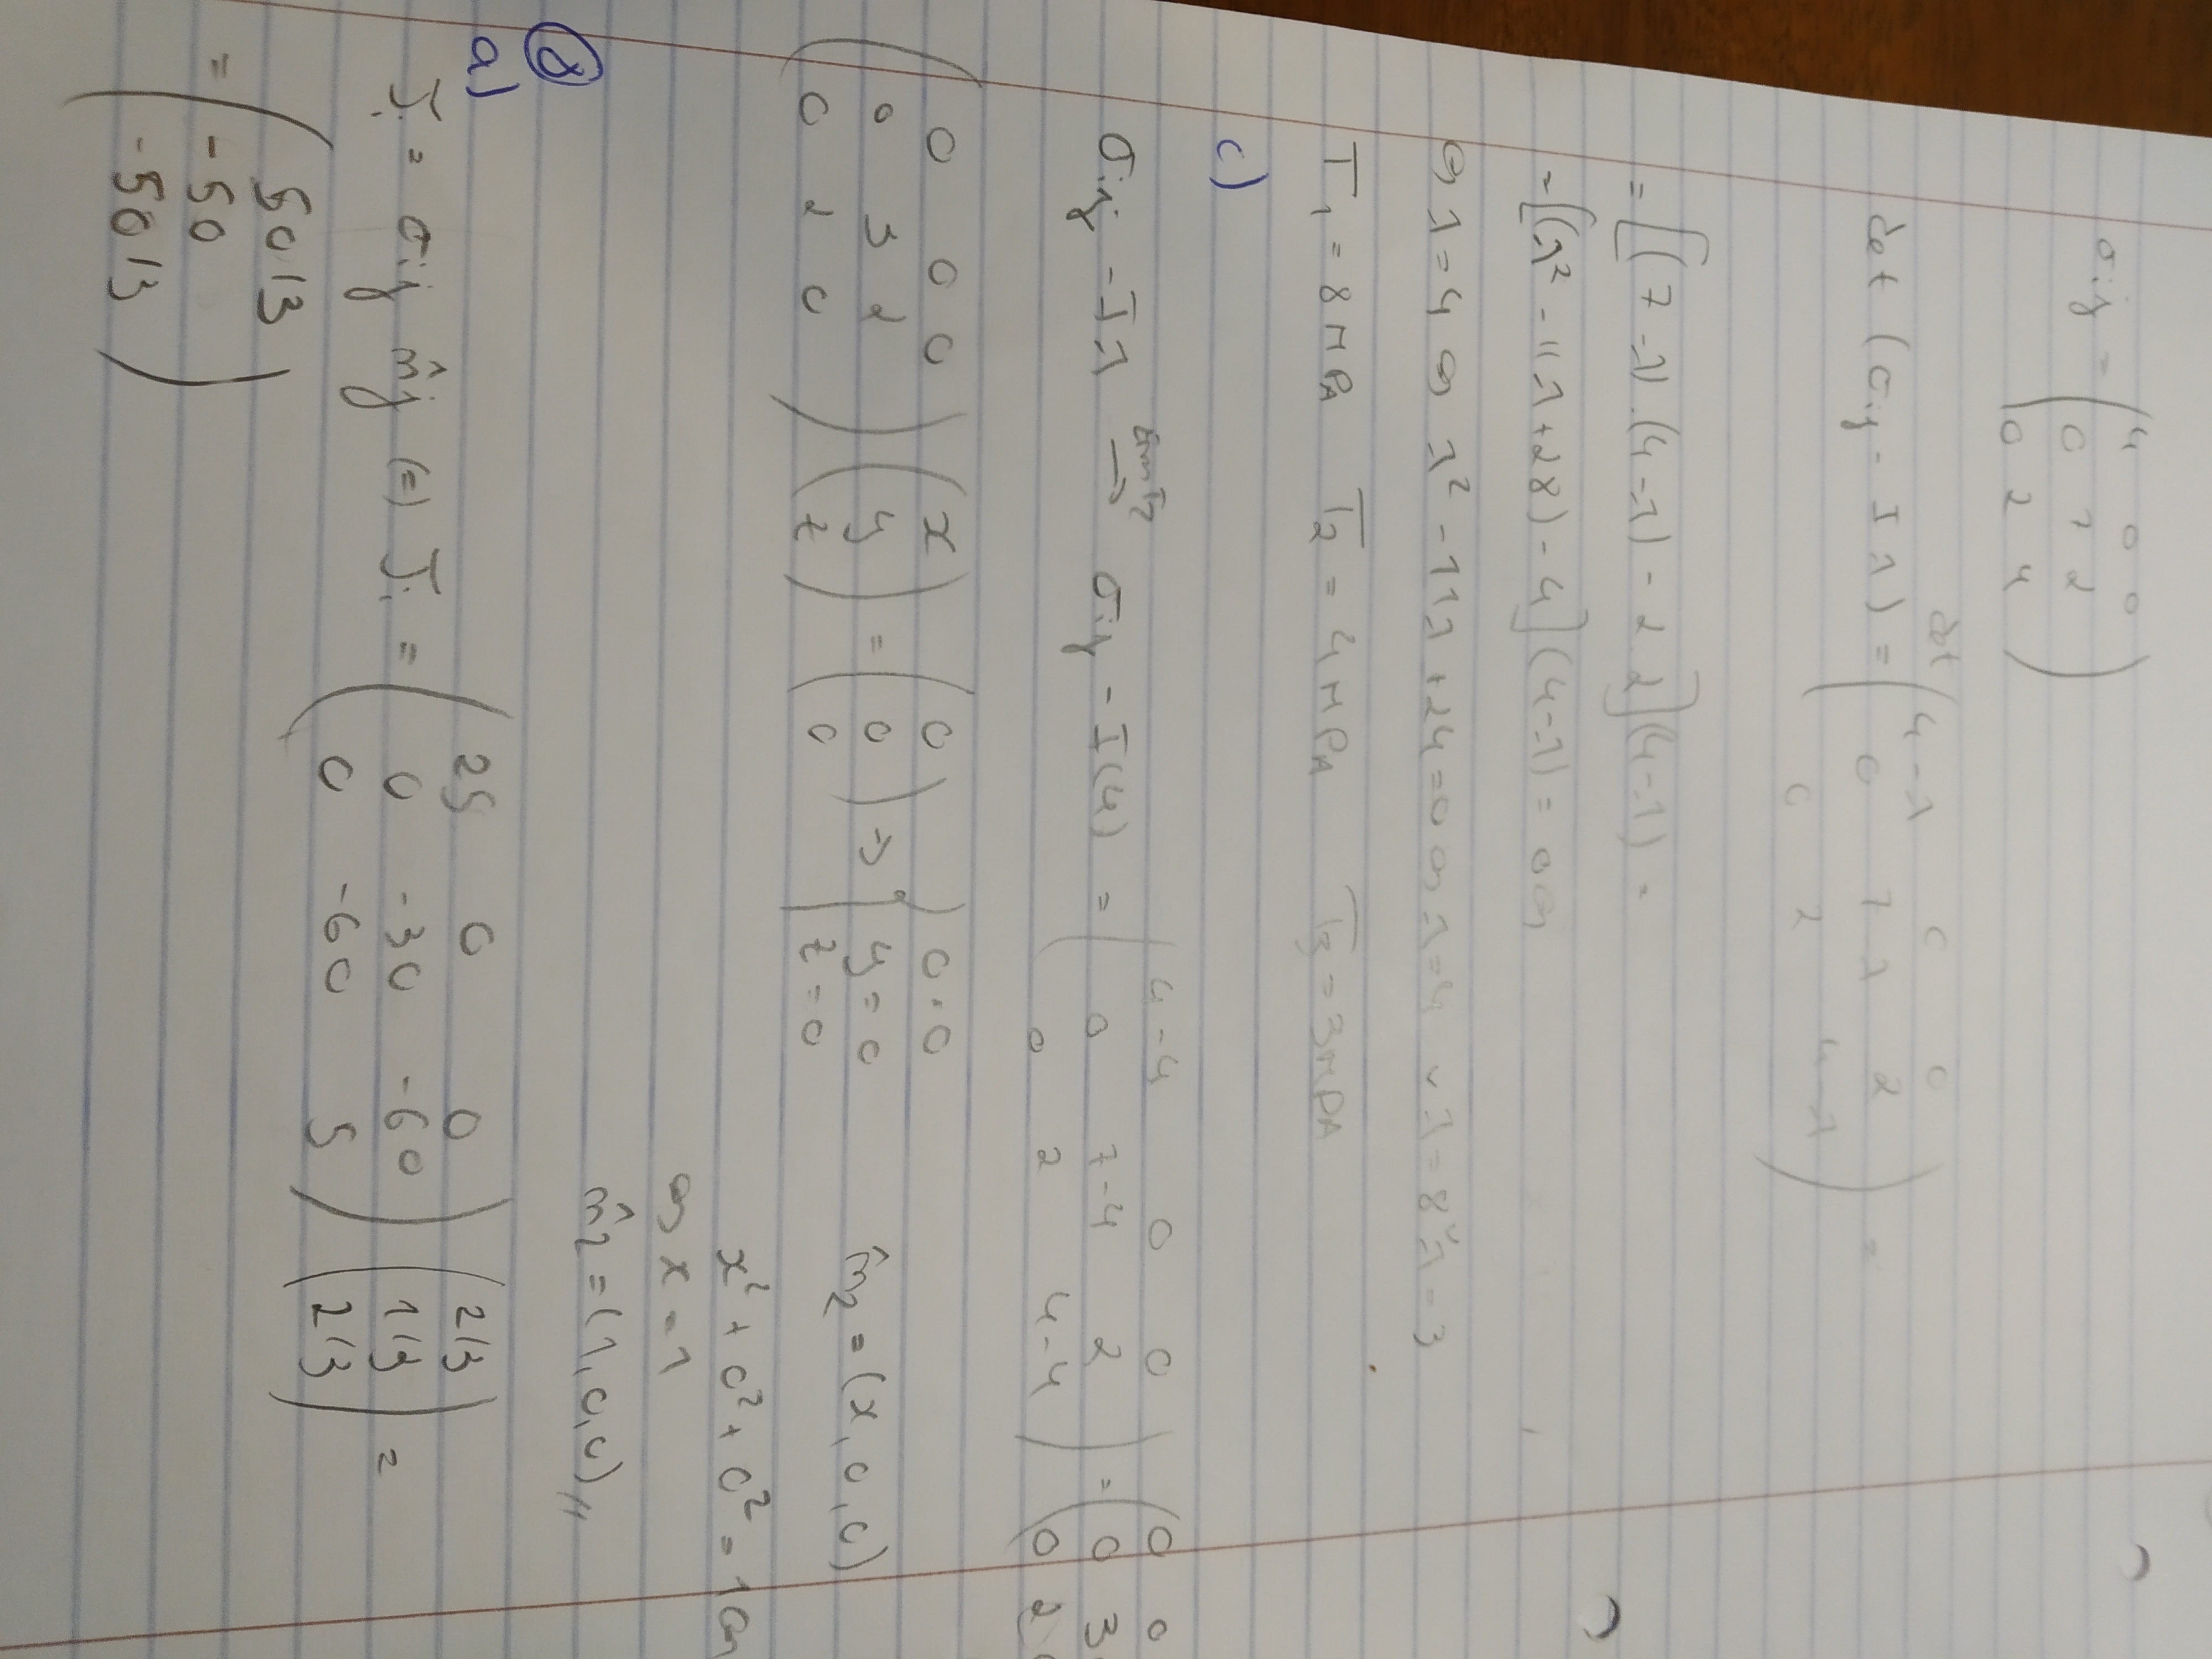 σij = ( 4 0 0
0 7 2
0 2 4 )
det
det (σij - Iλ) = ( 4-λ 0 0
0 7-λ 2
0 2 4-λ ) =
= [(7-λ).(4-λ) - 2 2](4-λ) =
= [(λ² - 11λ+28) - 4](4-λ) = 0 ⇔
⇔ λ=4 ⇔ λ² - 11λ + 24 = 0 ⇔ λ=4 v λ=8 v λ=3
T1 = 8 MPA T2 = 4 MPA T3 = 3 MPA
c)
σij - Iλ → σij - I(4) = ( 4-4 0 0
0 7-4 2
0 2 4-4 ) = ( 0 0
0 3
0 2
( 0 0 0
0 3 2
0 2 0 ) ( x
y
z ) = ( 0
0
0 ) => { 0=0
y=0
z=0
n̂2 = (x, 0, 0)
x² + 0² + 0² = 1 ⇔
⇔ x = 1
n̂2 = (1, 0, 0)//
②
a)
Ji = σij n̂j (=) Ji = ( 25 0 0
0 -30 -60
0 -60 5 ) ( 2/3
1/3
2/3 ) =
= ( 50/3
-50
-50/3 )